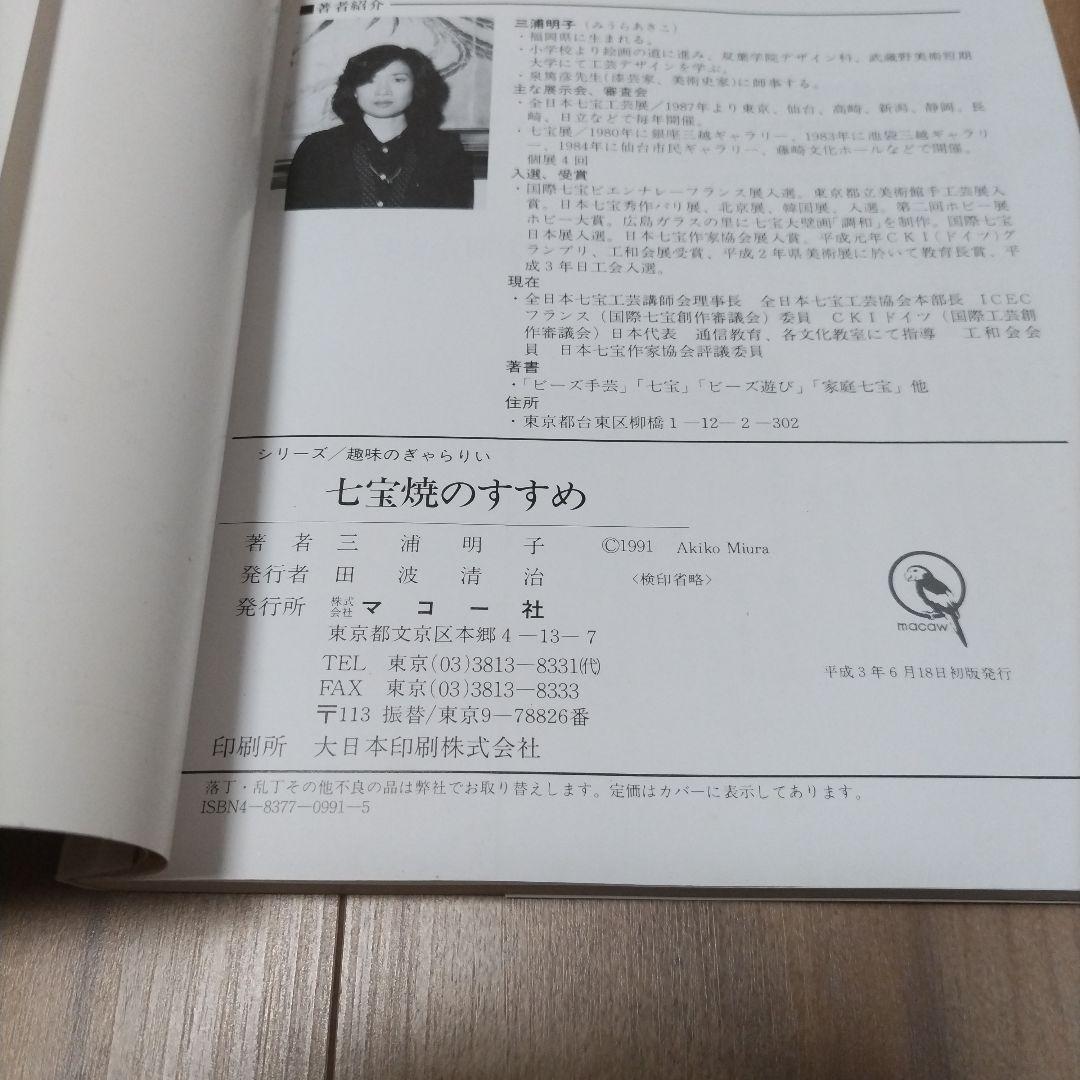 ■著者紹介
三浦明子（みうらあきこ）
・福岡県に生まれる。
・小学校より絵画の道に進み、双葉学院デザイン科、武蔵野美術短期
大学にて工芸デザインを学ぶ。
・泉篤彦先生(漆芸家、美術史家)に師事する。
主な展示会、審査会
・全日本七宝工芸展／1987年より東京、仙台、高崎、新潟、静岡、長
崎、日立などで毎年開催。
・七宝展／1980年に銀座三越ギャラリー、1983年に池袋三越ギャラリ
ー、1984年に仙台市民ギャラリー、藤崎文化ホールなどで開催。
個展４回
入選、受賞
・国際七宝ビエンナレーフランス展入選。東京都立美術館手工芸展入
賞。日本七宝秀作パリ展、北京展、韓国展、入選。第二回ホビー展
ホビー大賞。広島ガラスの里に七宝大壁画「調和」を制作。国際七宝
日本展入選。日本七宝作家協会展入賞。平成元年ＣＫＩ(ドイツ)グ
ランプリ、工和会展受賞、平成２年県美術展に於いて教育長賞、平
成３年日工会入選。
現在
・全日本七宝工芸講師会理事長　全日本七宝工芸協会本部長　ＩＣＥＣ
フランス（国際七宝創作審議会）委員　ＣＫＩドイツ（国際工芸創
作審議会）日本代表　通信教育、各文化教室にて指導　工和会会
員　日本七宝作家協会評議委員
著書
・「ビーズ手芸」「七宝」「ビーズ遊び」「家庭七宝」他
住所
・東京都台東区柳橋１―12―２―302
シリーズ／趣味のぎゃらりい
七宝焼のすすめ
著　者　三　浦　明　子　©1991　Akiko Miura
発行者　田　波　清　治　〈検印省略〉
発行所　株式会社　マ　コ　ー　社
macaw
東京都文京区本郷４―13―７
TEL　東京(03)3813―8331(代)
平成３年６月18日初版発行
FAX　東京(03)3813―8333
〒113 振替/東京9―78826番
印刷所　大日本印刷株式会社
落丁・乱丁その他不良の品は弊社でお取り替えします。定価はカバーに表示してあります。
ISBN4―8377―0991―5